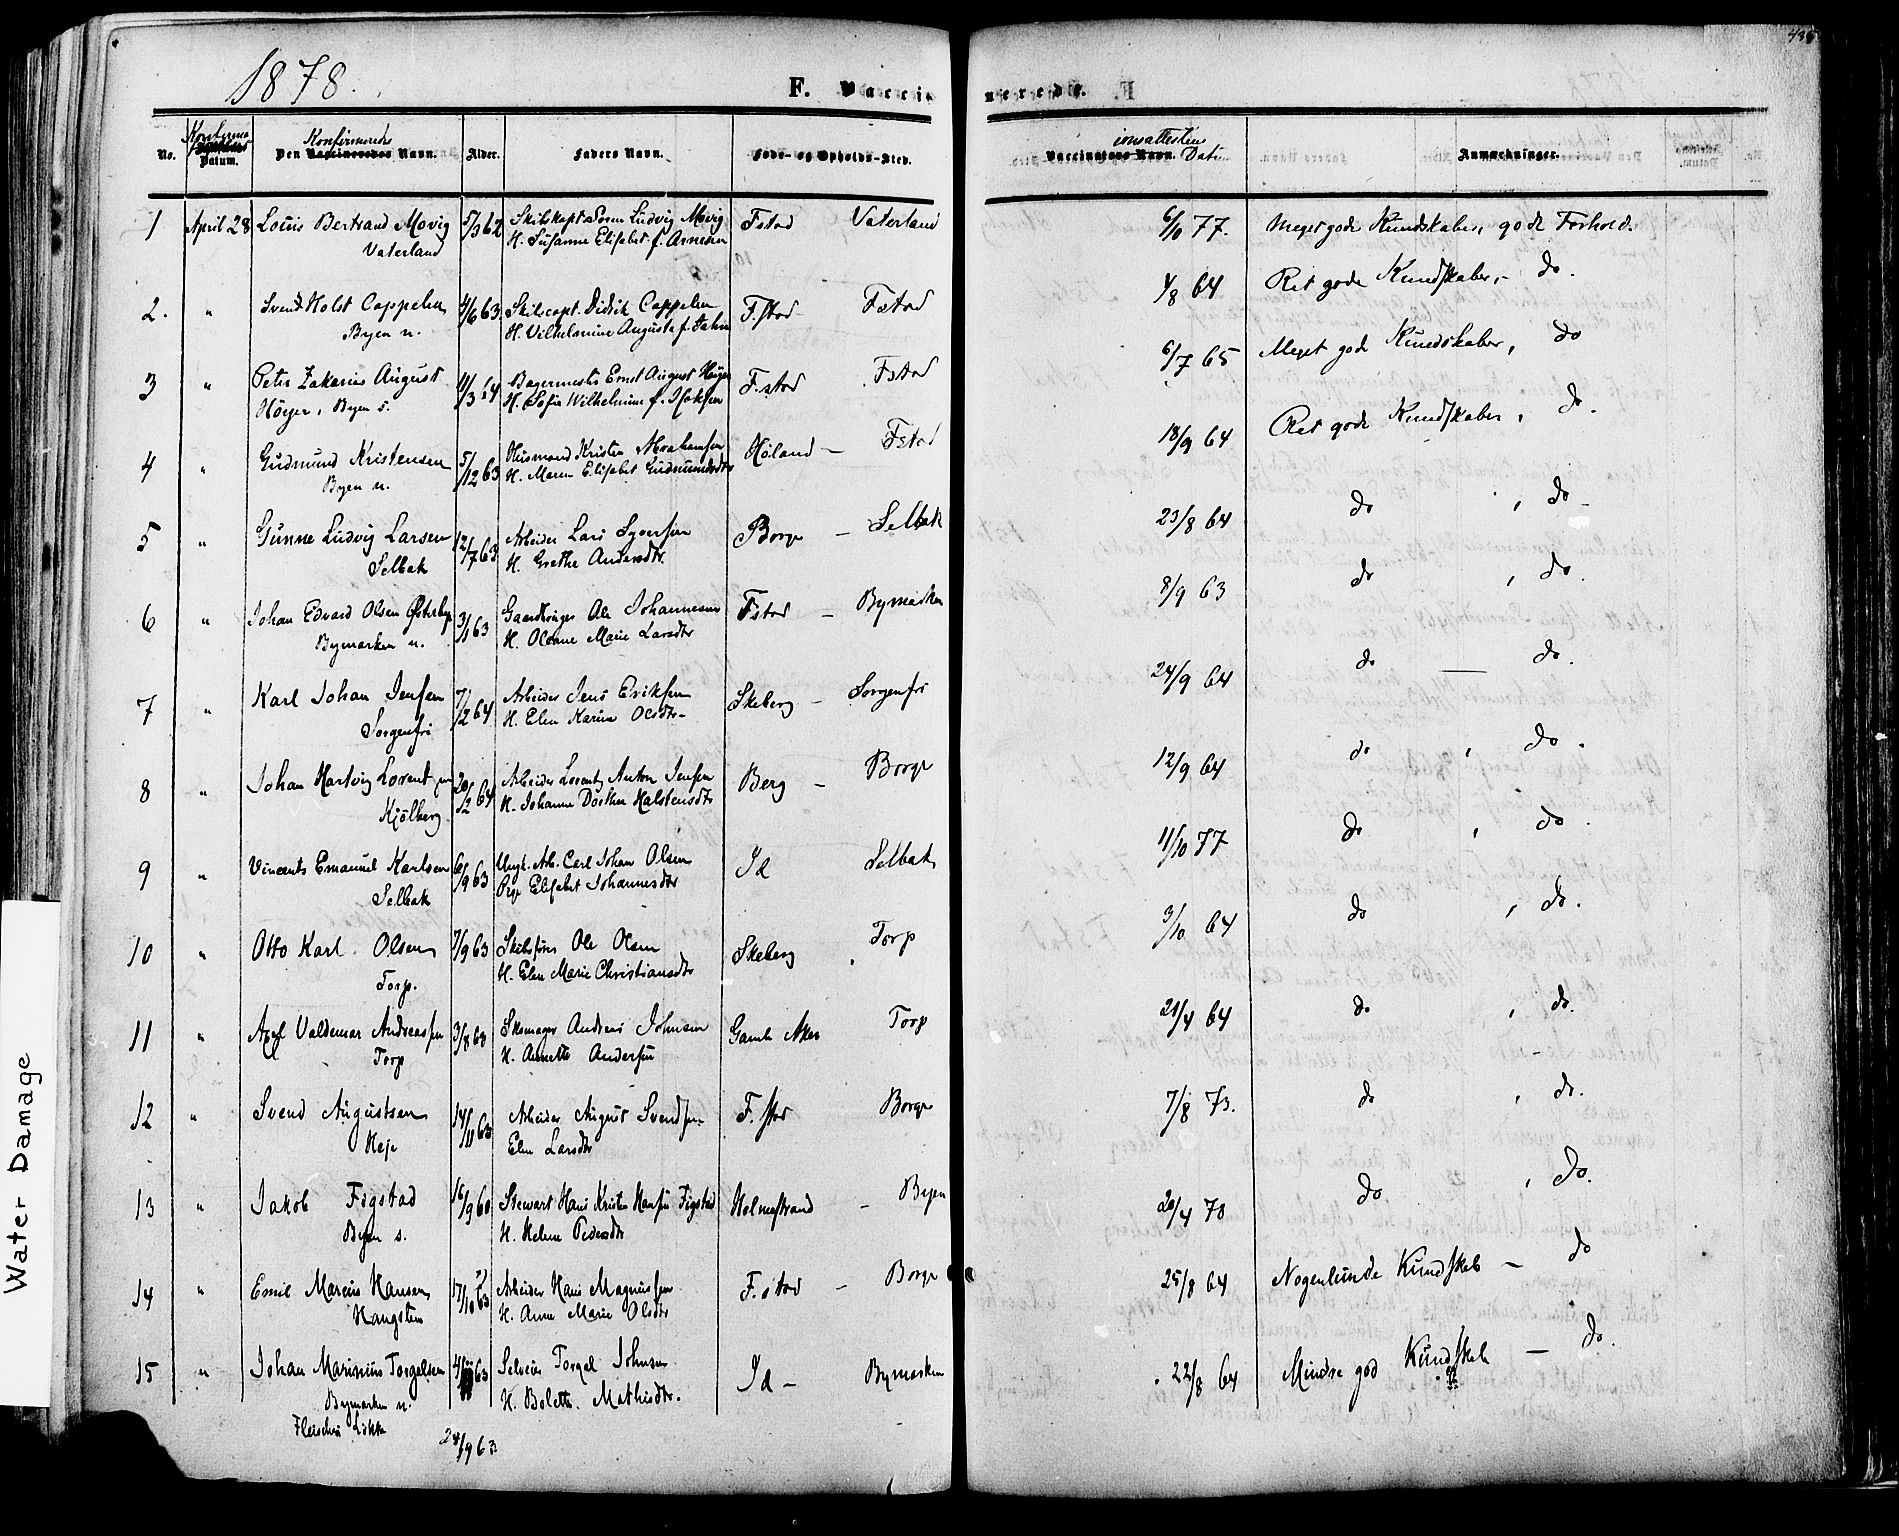 Water Damage
1878.
F. Vaccinerede.
No.
Datum.
Konfirmeredes
Den Vaccineredes Navn.
Alder.
Faders Navn.
Føde- og Opholds-Sted.
Vaccinators Navn. Dat
Anmærkninger.
1 April 28 Louis Bertrand Movig 5/3 62 Skibskapt. Sven Ludvig Movig F.stad Vaterland 6/10 77. Meget gode Kundskaber, godt Forhold.
Vaterland H. Susanne Elisabet f. Arnesen
2. " Svend Holst Cappelen 4/6 63. Skibscapt. Didrik Cappelen F.stad F.stad 1/8 64 Ret gode Kundskaber, do.
Byen n. H. Vilhelmine Augusta f.
3 " Peter Zakarias August Bagermester Ernst August Høyer F.stad F.stad 6/7 65 Meget gode Kundskaber, do
Höyer, Byen s. H. Sofie Wilhelmine f. Isaksen
4 " Gudmund Kristensen 5/12 63 Husmand Kristen Abrahamsen Høland – F.stad 18/9 64 Ret gode Kundskaber, do.
Byen n. H. Maren Elisabet Gudmundsdtr
5 " Gunne Ludvig Larsen 12/7 63 Arbeider Lars Syversen Borge – Selbak 23/8 64 do , do
Selbak H. Grethe Andersdtr.
6 " Johan Edvard Olsen Østerby 3/1 63 Gaardbruger Ole Johannesen F.stad – Bymarken 8/9 63 do , do.
Bymarken n. H. Oleane Marie Larsdtr
7 " Karl Johan Jensen 7/2 64 Arbeider Jens Eriksen Skeberg – Sorgenfri 24/9 64 do — do.
Sorgenfri H. Elen Karine Olsdtr
8 " Johan Hartvig Lorentzen 20/2 64 Arbeider Lorentz Anton Jensen Berg – Borge 12/9 64 do , do.
Kjölberg H. Johanne Dorthea Halstensdtr
9 " Vincents Emanuel Karlsen 6/9 63 Ungk. Arb. Carl Johan Olsen Id Selbak 11/10 77 do , do.
Selbak Pige Elisabet Johannesdtr
10 " Otto Karl Olsen 7/9 63 Skibsförer Ole Olsen Skeberg . Torp 3/10 64 do , do.
Torp. H. Elen Marie Christiansdtr
11 " Axel Valdemar Andreassen 3/8 63 Skomager Andreas Johnsen Gamle Aker Torp 21/4 64 do , do.
Torp H. Annette Andersen
12 " Svend Augustsen 14/11 63 Arbeider August Svendsen F.stad Borge 7/8 73. do , do.
Heje Elen Larsdtr
13 " Jakob Figstad 16/9 60 Stewart Hans Kristen Hansen Figstad Holmestrand – Byen 20/4 70 do , do.
Byen s. H. Helene Pedersdtr
14 " Emil Marius Hansen 17/10 63 Arbeider Hans Magnussen F.stad – Borge 25/8 64 Nogenlunde Kundskab – do
Hangsten H. Anne Marie Olsdtr
15 " Johan Marinius Torgelsen 63 Selveier Torgel Johnsen Id – Bymarken 22/8 64 Mindre god Kundskab – do.
Bymarken n. H. Bolette Mathisdtr.
24/9 63